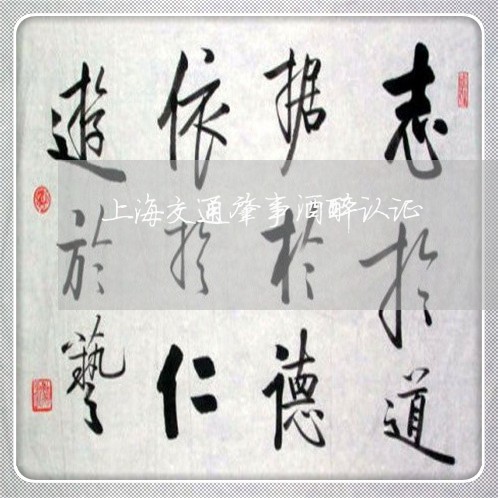 志於道
据於德
依於仁
遊於藝
上海交通肇事酒醉认证